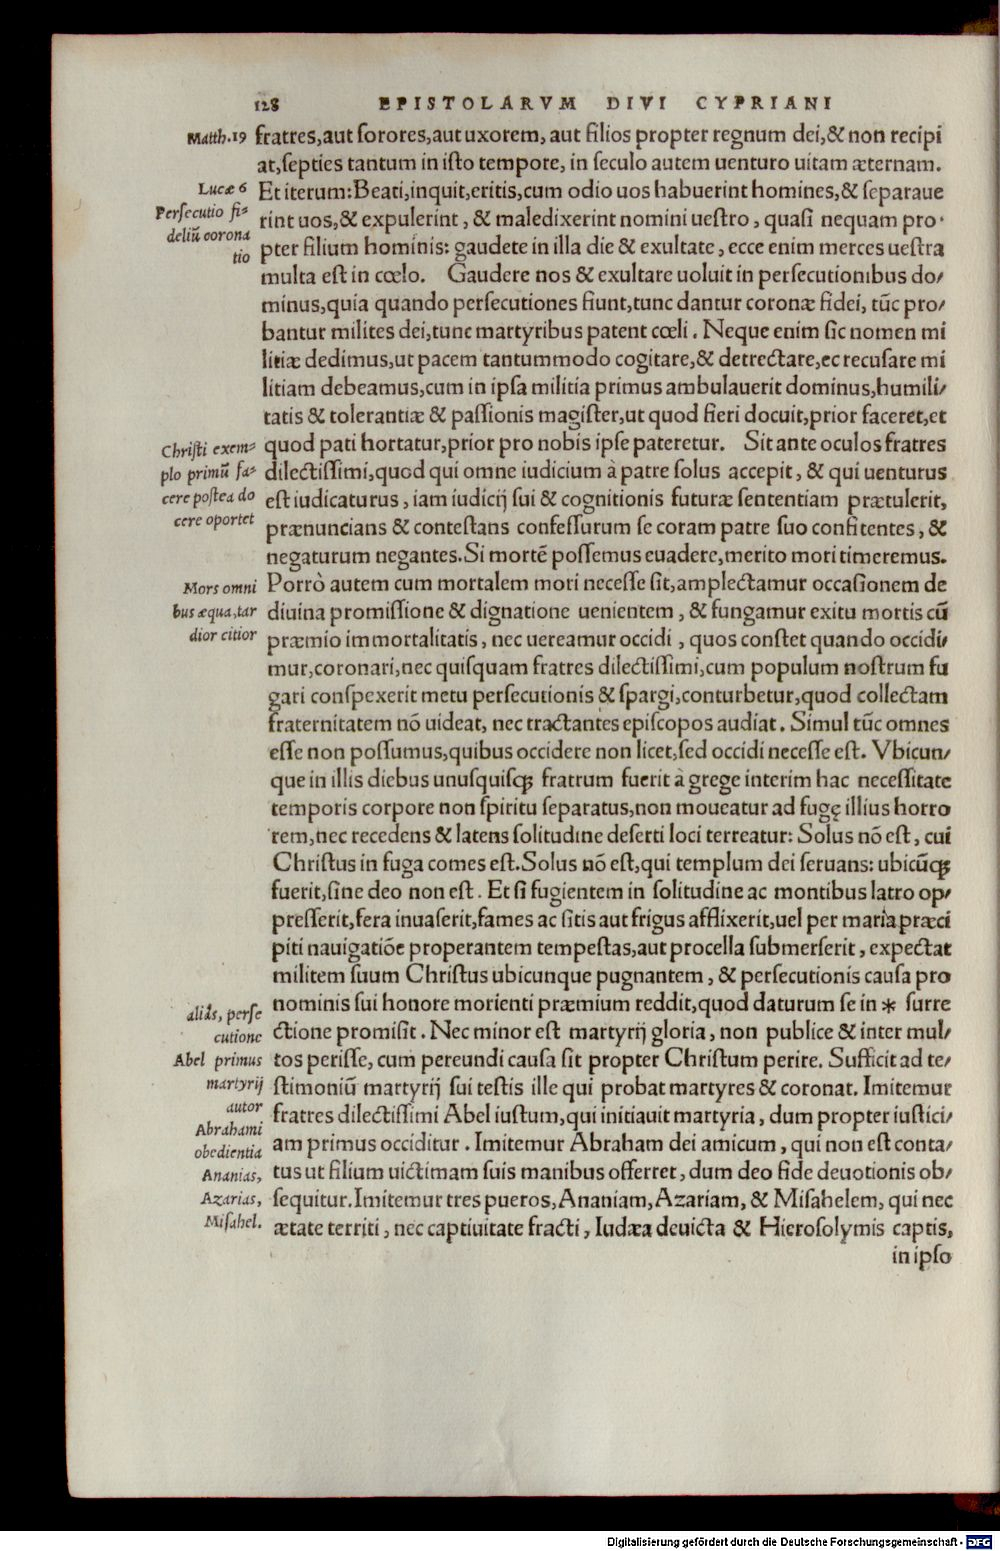 128 EPISTOLARVM DIVI CYPRIANI
Matth.19 fratres,aut sorores,aut uxorem, aut filios propter regnum dei,& non recipi
at,septies tantum in isto tempore, in seculo autem uenturo uitam æternam.
Lucæ 6 Et iterum:Beati,inquit,eritis,cum odio uos habuerint homines,& separaue
Persecutio fi⸗
rint uos,& expulerint, & maledixerint nomini uestro, quasi nequam pro⸗
deliũ corona
pter filium hominis: gaudete in illa die & exultate, ecce enim merces uestra
tio
multa est in cœlo. Gaudere nos & exultare uoluit in persecutionibus do⸗
minus,quia quando persecutiones fiunt,tunc dantur coronæ fidei, tũc pro⸗
bantur milites dei,tunc martyribus patent cœli. Neque enim sic nomen mi
litiæ dedimus,ut pacem tantummodo cogitare,& detrectare,ec recusare mi
litiam debeamus,cum in ipsa militia primus ambulauerit dominus,humili⸗
tatis & tolerantiæ & passionis magister,ut quod fieri docuit,prior faceret,et
Christi exem⸗
quod pati hortatur,prior pro nobis ipse pateretur. Sit ante oculos fratres
plo primũ fa⸗
dilectissimi,quod qui omne iudicium à patre solus accepit, & qui uenturus
cere postea do
est iudicaturus, iam iudicij sui & cognitionis futuræ sententiam prætulerit,
cere oportet
prænuncians & contestans confessurum se coram patre suo confitentes, &
negaturum negantes.Si mortẽ possemus euadere,merito mori timeremus.
Mors omni
Porrò autem cum mortalem mori necesse sit,amplectamur occasionem de
bus æqua,tar
diuina promissione & dignatione uenientem, & fungamur exitu mortis cũ
dior citior
præmio immortalitatis, nec uereamur occidi, quos constet quando occidi⸗
mur,coronari,nec quisquam fratres dilectissimi,cum populum nostrum fu
gari conspexerit metu persecutionis & spargi,conturbetur,quod collectam
fraternitatem nõ uideat, nec tractantes episcopos audiat. Simul tũc omnes
esse non possumus,quibus occidere non licet,sed occidi necesse est. Vbicun⸗
que in illis diebus unusquisqꝫ fratrum fuerit à grege interim hac necessitate
temporis corpore non spiritu separatus,non moueatur ad fugę illius horro
rem,nec recedens & latens solitudine deserti loci terreatur: Solus nõ est, cui
Christus in fuga comes est.Solus nõ est,qui templum dei seruans: ubicũqꝫ
fuerit,sine deo non est. Et si fugientem in solitudine ac montibus latro op⸗
presserit,fera inuaserit,fames ac sitis aut frigus afflixerit,uel per maria præci
piti nauigatiõe properantem tempestas,aut procella submerserit, expectat
militem suum Christus ubicunque pugnantem, & persecutionis causa pro
nominis sui honore morienti præmium reddit,quod daturum se in * surre
aliâs, perse
cutione
ctione promisit. Nec minor est martyrij gloria, non publice & inter mul⸗
Abel primus
tos perisse, cum pereundi causa sit propter Christum perire. Sufficit ad te⸗
martyrij
stimoniũ martyrij sui testis ille qui probat martyres & coronat. Imitemur
autor
fratres dilectissimi Abel iustum,qui initiauit martyria, dum propter iustici⸗
Abrahami
am primus occiditur. Imitemur Abraham dei amicum, qui non est conta⸗
obedientia
Ananias,
tus ut filium uictimam suis manibus offerret, dum deo fide deuotionis ob⸗
Azarias,
sequitur.Imitemur tres pueros, Ananiam, Azariam, & Misahelem, qui nec
Misahel.
ætate territi, nec captiuitate fracti, Iudæa deuicta & Hierosolymis captis,
in ipso
Digitalisierung gefördert durch die Deutsche Forschungsgemeinschaft - DFG